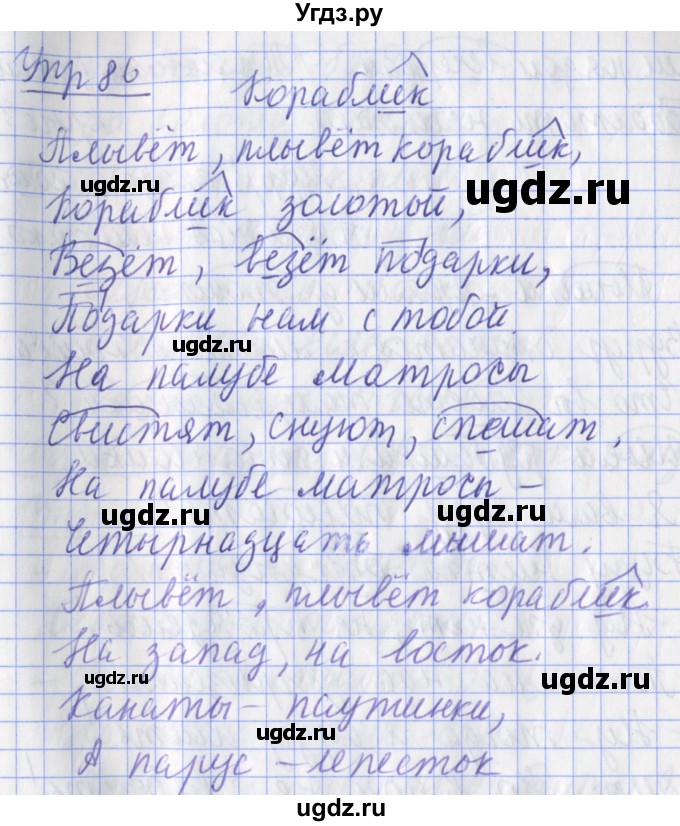 Угдз.ру
Упр 86
Кораблик
Плывёт, плывёт кораблик,
ugdz.ru
ugdz.ru
Кораблик золотой,
Везёт, везёт подарки,
Подарки нам с тобой.
ugdz.ru
На палубе матросы
Свистят, снуют, спешат,
На палубе матросы –
ugdz.ru
ugdz.ru
Четырнадцать мышат.
Плывёт, плывёт кораблик
На запад, на восток.
ugdz.ru
Канаты – паутинки,
ugdz.ru
А парус – лепесток
ugdz.ru